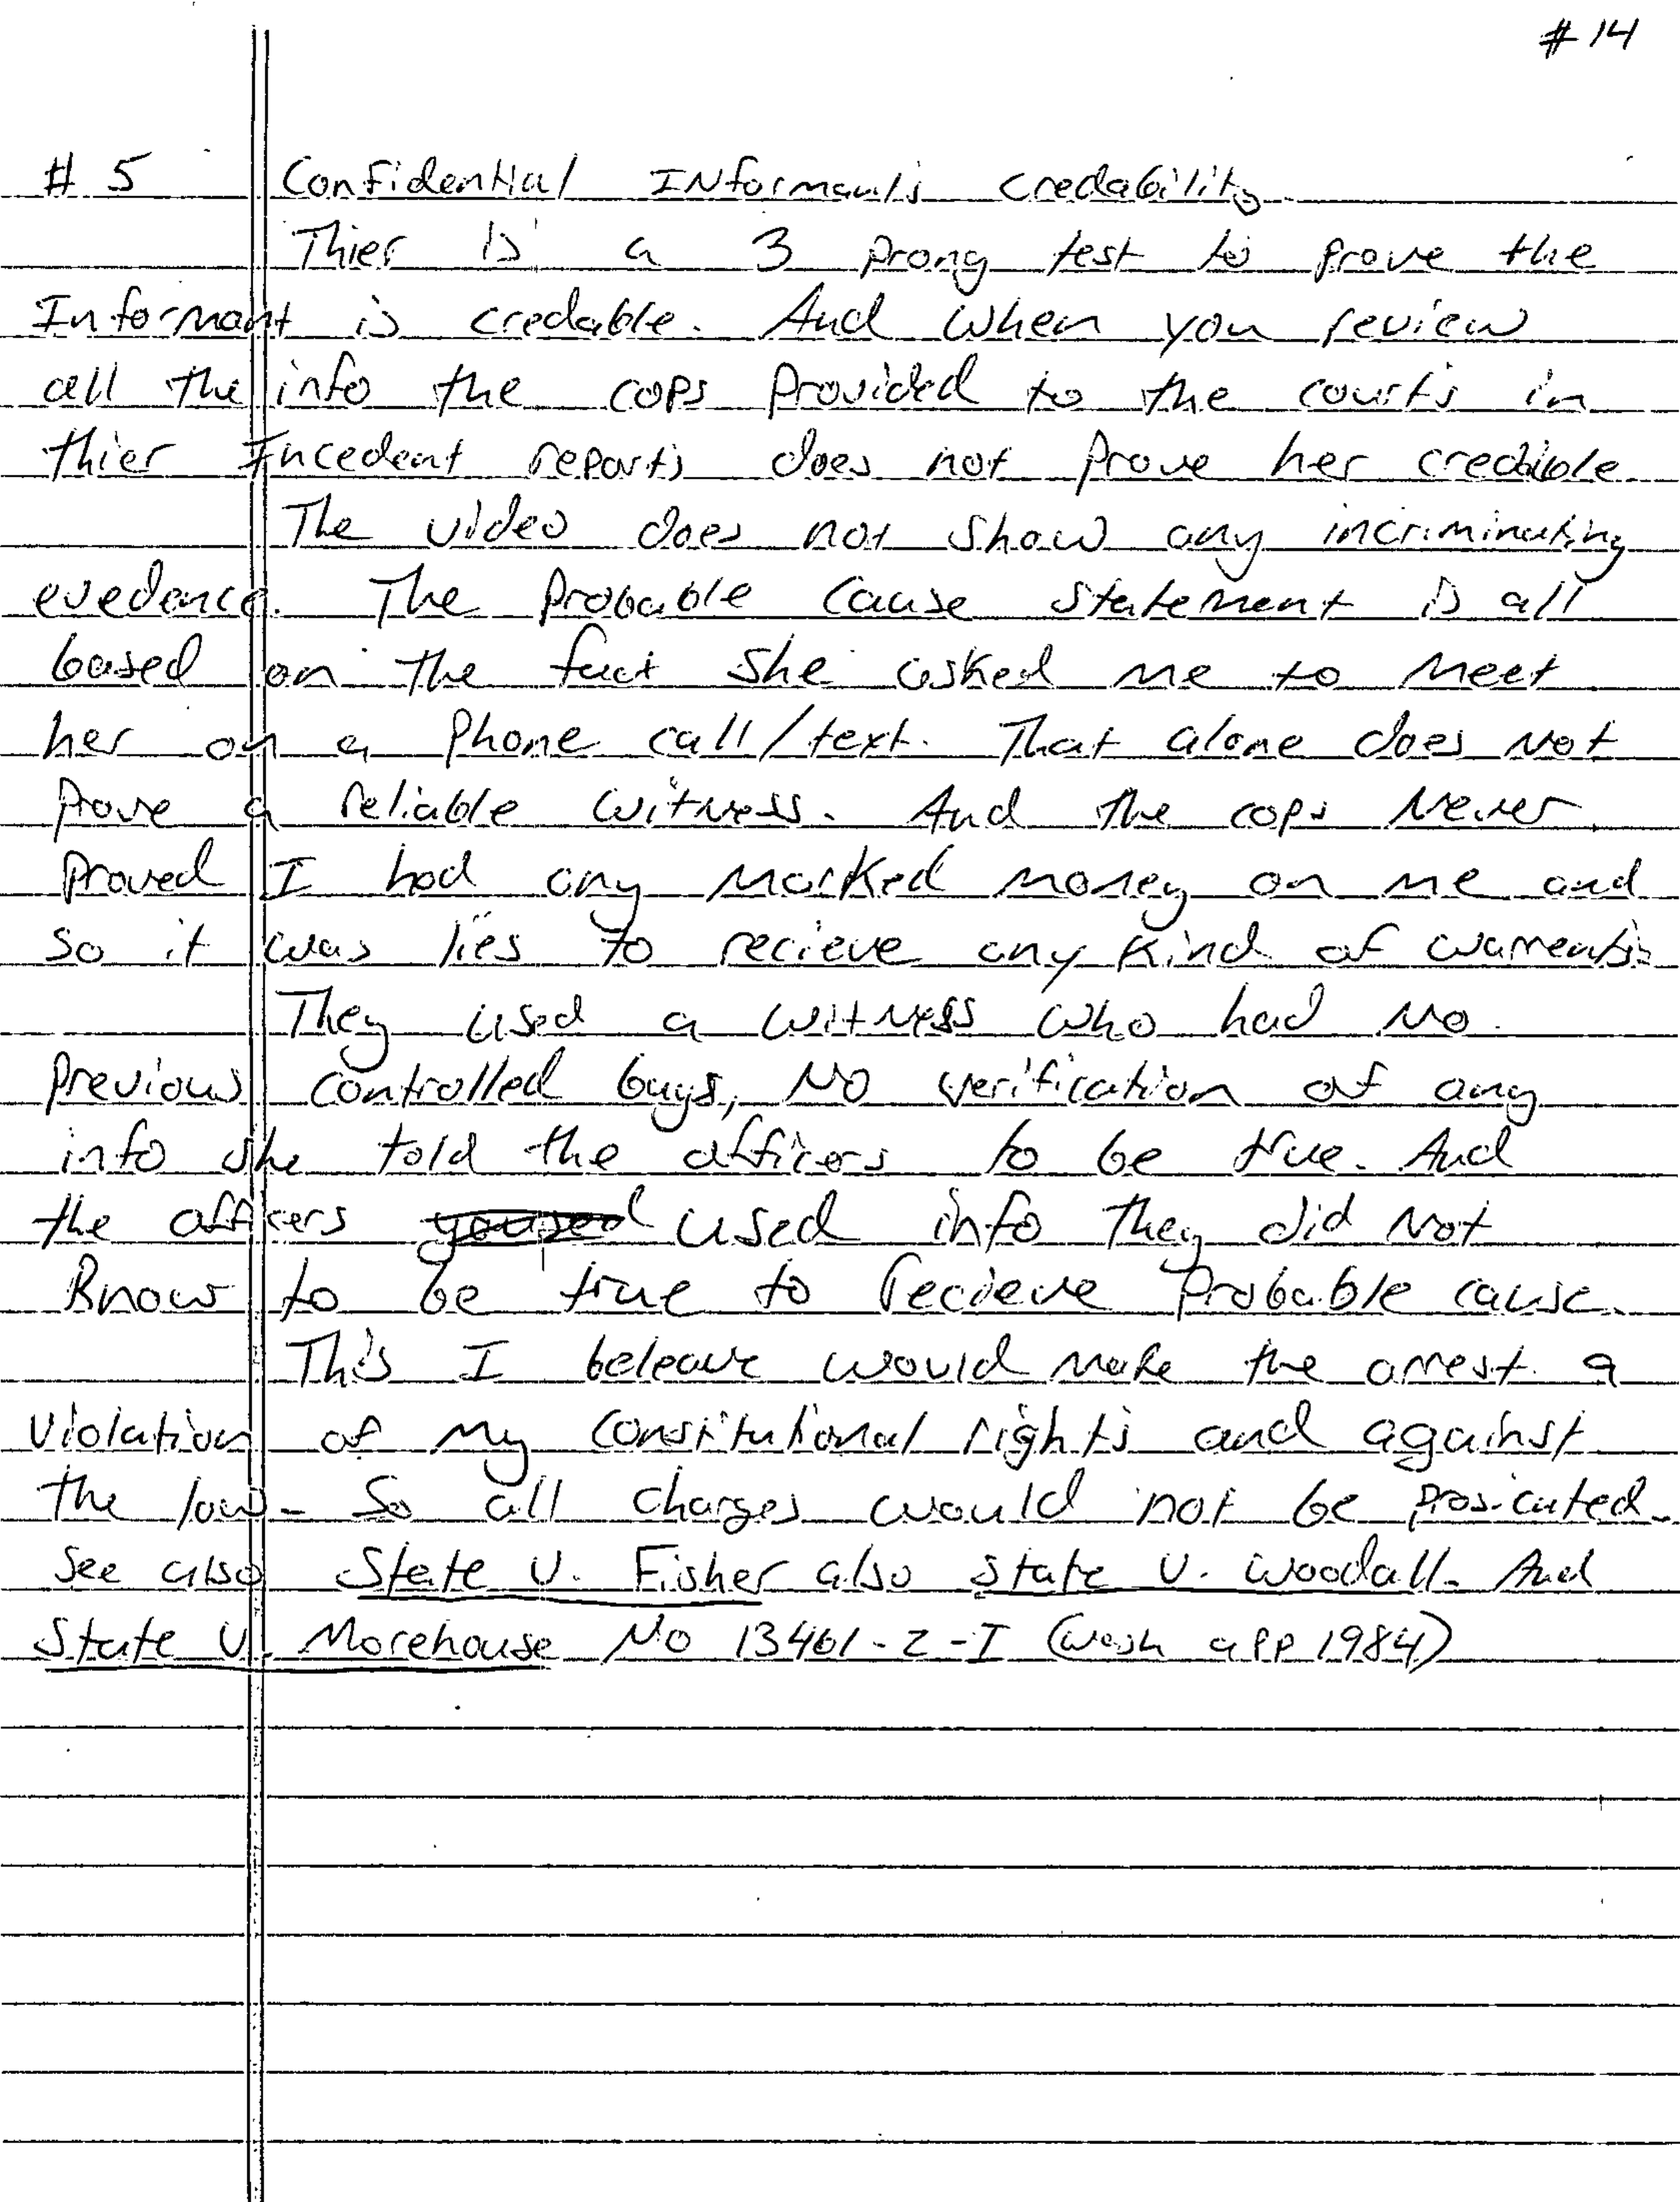 # 14
# 5 Confidential INformant's credability
Thier is a 3 prong test to prove the
Informant is credable. And when you review
all the info the cops provided to the courts in
thier Incedent reports does not prove her credible.
The video does not show any incriminating
evedence. The probable cause statement is all
based on the fact she asked me to meet
her on a phone call/text. That alone does not
prove a reliable witness. And the cops never
proved I had any marked money on me and
so it was lies to recieve any kind of warrents.
They used a witness who had no
previous controlled buys, No verification of any
info she told the officers to be true. And
the officers used info they did not
know to be true to recieve probable cause.
This I beleave would make the arrest a
violation of my constitutional rights and against
the law. So all charges would not be prosicuted.
See also State v. Fisher also State v. Woodall. And
State v. Morehouse No 13461-2-I (wash app 1984)